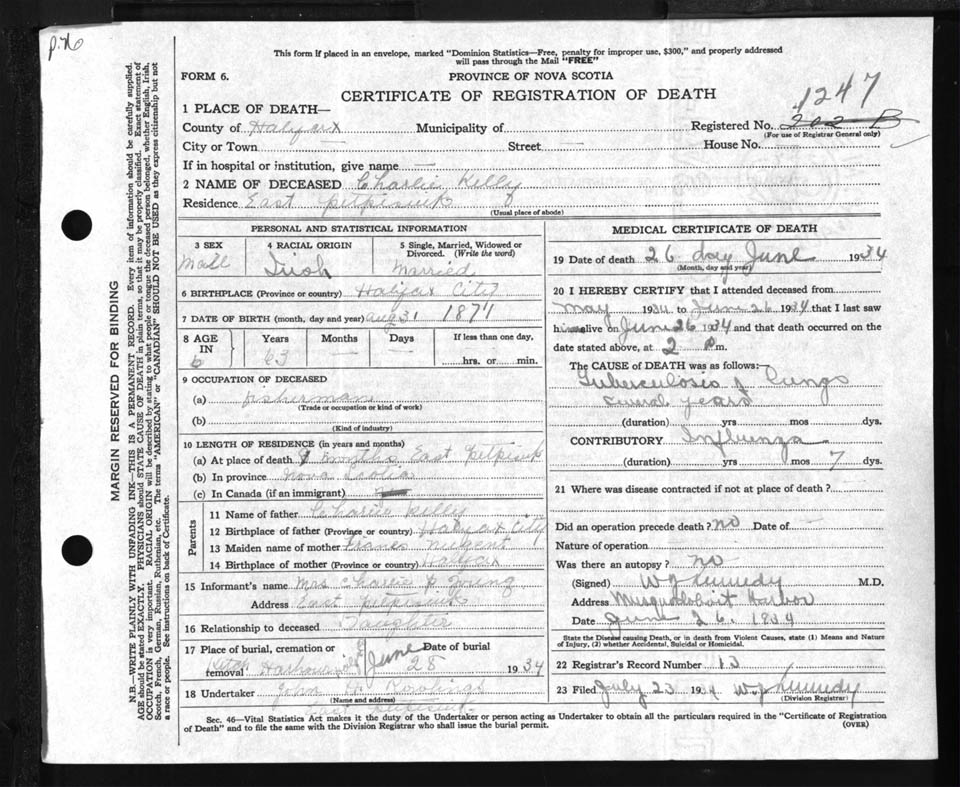 p. 76
This form if placed in an envelope, marked "Dominion Statistics—Free, penalty for improper use, $300," and properly addressed
will pass through the Mail "FREE"
FORM 6.
PROVINCE OF NOVA SCOTIA
CERTIFICATE OF REGISTRATION OF DEATH
1247
1 PLACE OF DEATH—
County of Halyax Municipality of Registered No. 202-B
(For use of Registrar General only)
City or Town — Street — House No.
If in hospital or institution, give name —
2 NAME OF DECEASED Charlie Kelly
Residence East petpisiuk
(Usual place of abode)
MARGIN RESERVED FOR BINDING
N.B.—WRITE PLAINLY WITH UNFADING INK—THIS IS A PERMANENT RECORD. Every item of information should be carefully supplied.
AGE should be stated EXACTLY. PHYSICIANS should STATE CAUSE OF DEATH in plain terms, so that it may be properly classified. Exact statement of
OCCUPATION is very important. RACIAL ORIGIN will be described by stating to what people or tongue the deceased person belonged, whether English, Irish,
Scotch, French, German, Russian, Ruthenian, etc. The terms "AMERICAN" or "CANADIAN" SHOULD NOT BE USED as they express citizenship but not
a race or people. See instructions on back of Certificate.
PERSONAL AND STATISTICAL INFORMATION
3 SEX 4 RACIAL ORIGIN 5 Single, Married, Widowed or
Divorced. (Write the word)
Male Irish Married
6 BIRTHPLACE (Province or country) Halifax City
7 DATE OF BIRTH (month, day and year) aug 31 1871
8 AGE IN 6 Years Months Days If less than one day,
63 — — hrs. or min.
9 OCCUPATION OF DECEASED
(a) fisherman
(Trade or occupation or kind of work)
(b)
(Kind of industry)
10 LENGTH OF RESIDENCE (in years and months)
(a) At place of death 9 months East petpisiuk
(b) In province Nova Scotia
(c) In Canada (if an immigrant)
Parents
11 Name of father Charlie Kelly
12 Birthplace of father (Province or country) Halifax City
13 Maiden name of mother Frances nugent
14 Birthplace of mother (Province or country) Halifax
15 Informant's name Mrs Charlie p young
Address East petpisiuk
16 Relationship to deceased Daughter
17 Place of burial, cremation or Date of burial
removal Harbour June 28 1934
18 Undertaker John H Rowlings
(Name and address)
East petpisiuk
MEDICAL CERTIFICATE OF DEATH
19 Date of death 26 day June 1934
(Month, day and year)
20 I HEREBY CERTIFY that I attended deceased from
May 1934 to June 26 1934 that I last saw
him alive on June 26 1934 and that death occurred on the
date stated above, at 2 P m.
The CAUSE OF DEATH was as follows:—
Tuberculosis of Lungs
several years
(duration) yrs mos dys.
CONTRIBUTORY Influenza
(duration) yrs mos 7 dys.
21 Where was disease contracted if not at place of death?
Did an operation precede death? no Date of —
Nature of operation
Was there an autopsy? no
(Signed) W J Kennedy M.D.
Address Musquodoboit Harbor
Date June 26. 1934
State the Disease causing Death, or in death from Violent Causes, state (1) Means and Nature
of Injury, (2) whether Accidental, Suicidal or Homicidal.
22 Registrar's Record Number 13
23 Filed July 23 1934 W J Kennedy
(Division Registrar)
Sec. 46—Vital Statistics Act makes it the duty of the Undertaker or person acting as Undertaker to obtain all the particulars required in the "Certificate of Registration
of Death" and to file the same with the Division Registrar who shall issue the burial permit. (OVER)